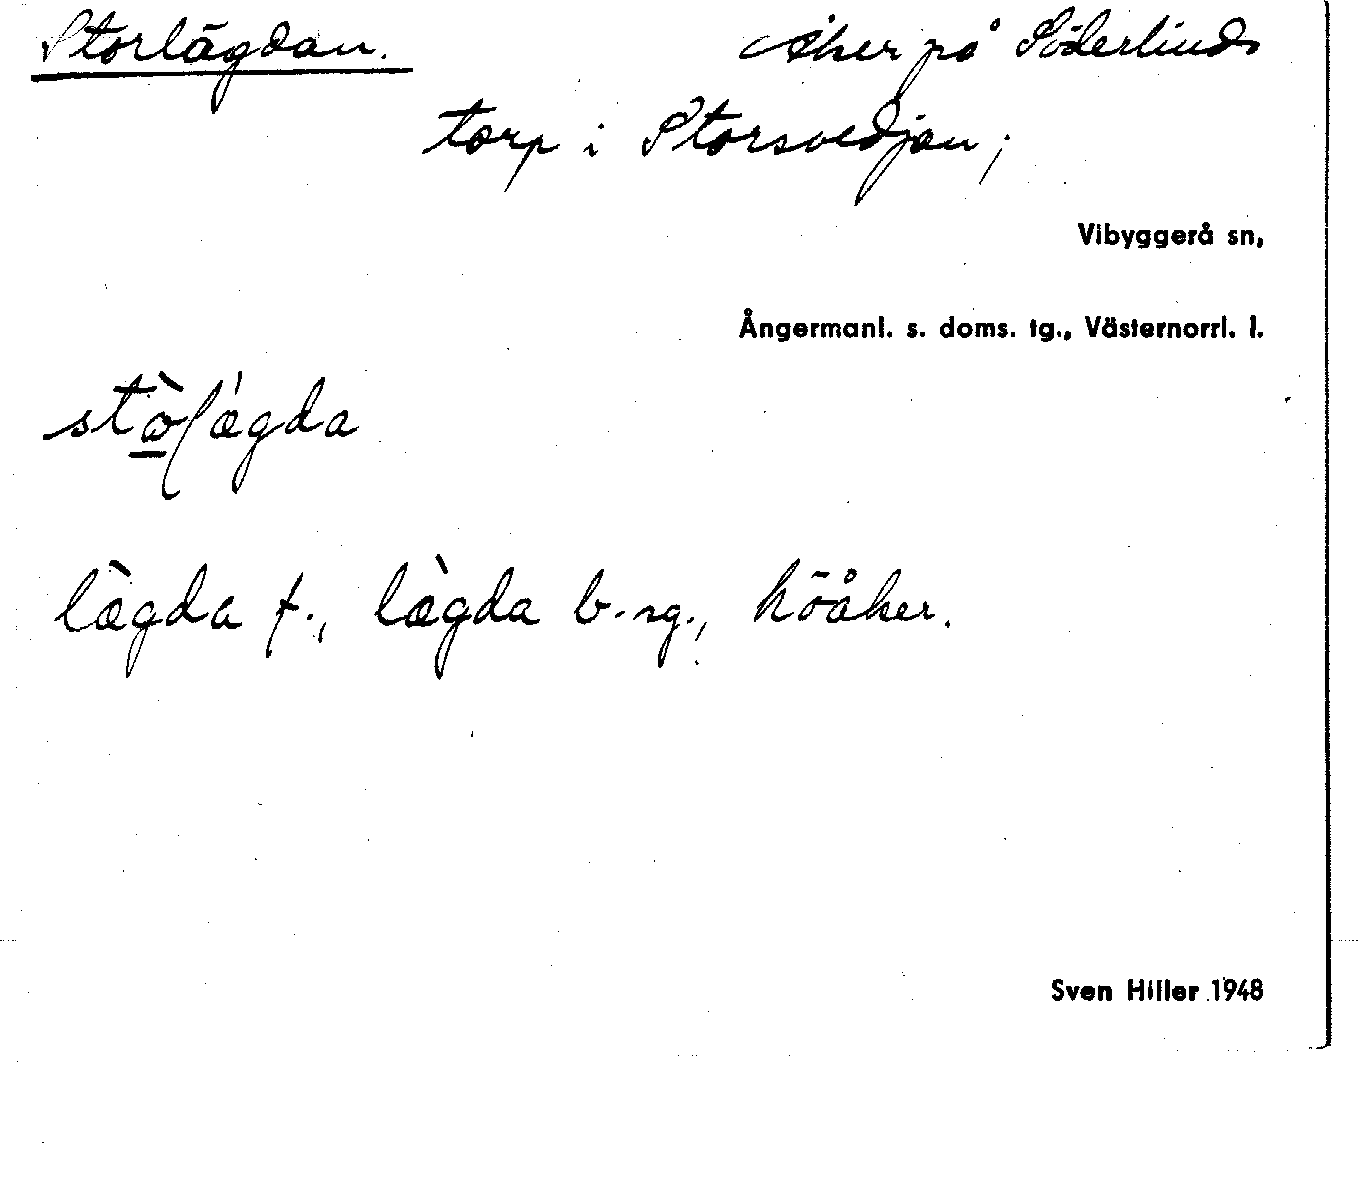 Storlägdan. Åker på Söderlinds
torp i Storsvedjan;
Vibyggerå sn,
Ångermanl. s. doms. tg., Västernorrl. l.
stò̱lǽgda
læ̀gda f., læ̀gda b. sg., höåker.
Sven Hiller 1948